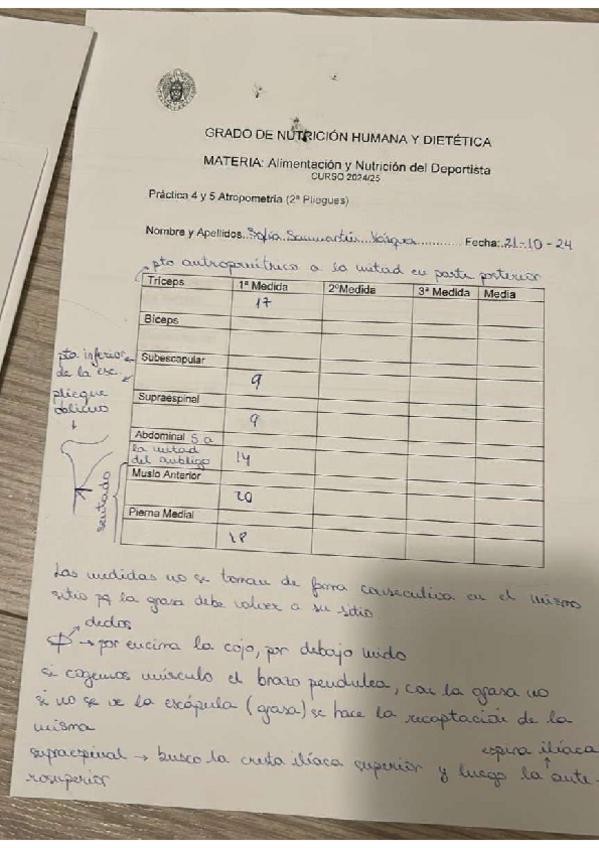 GRADO DE NUTRICIÓN HUMANA Y DIETÉTICA
MATERIA: Alimentación y Nutrición del Deportista
CURSO 2024/25
Práctica 4 y 5 Atropometría (2ª Pliegues)
Nombre y Apellidos. Sofía Sanmartín Vázquez Fecha: 21-10-24
pto antropométrico a la mitad en parte posterior
Tríceps 1ª Medida 2ºMedida 3ª Medida Media
17
Bíceps
pto inferior de la esc.
pliegue oblicuo
Subescapular
9
Supraespinal
9
Abdominal 5 a
la mitad
del ombligo 14
sentado
Muslo Anterior
20
Pierna Medial
18
Las medidas no se toman de forma consecutiva en el mismo
sitio pq la grasa debe volver a su sitio
dedos
→ por encima la cojo, por debajo mido
si cogemos músculo el brazo pendulea, con la grasa no
si no se ve la escápula (grasa) se hace la recaptación de la
misma
supraespinal → busco la cresta ilíaca superior y luego la ante-
rosuperior
espina ilíaca